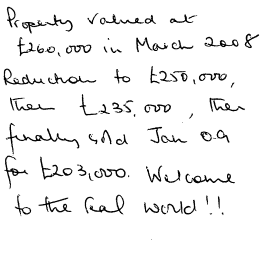 Property valued at
£260,000 in March 2008
Reduction to £250,000,
then £235,000, then
finally sold Jan 09
for £203,000. Welcome
to the real world!!